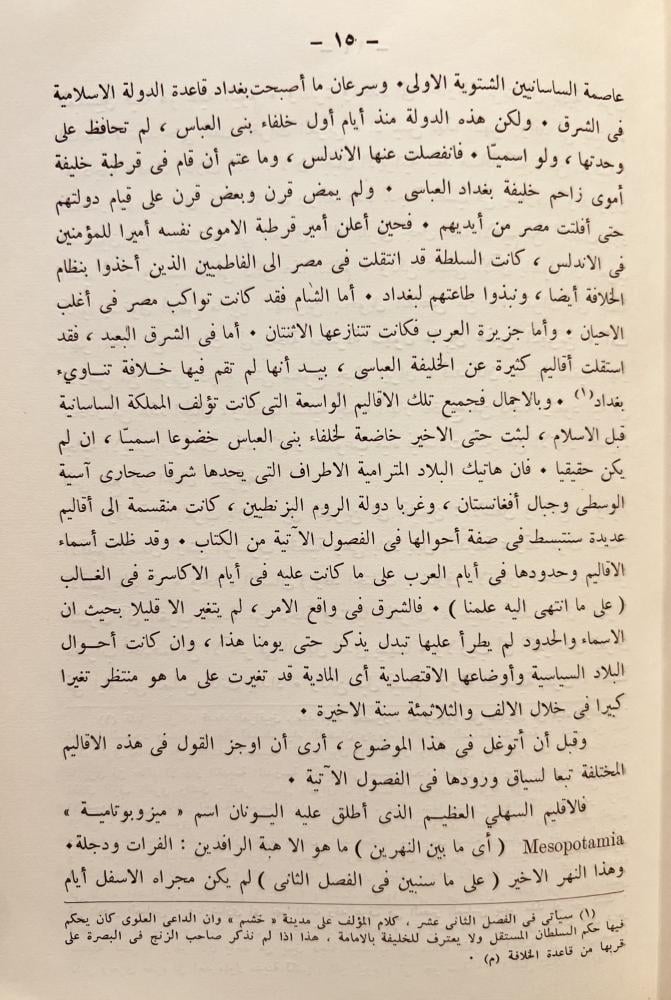 – ١٥ –
عاصمة الساسانيين الشتوية الاولى ٠ وسرعان ما أصبحت بغداد قاعدة الدولة الاسلامية
فى الشرق ٠ ولكن هذه الدولة منذ أيام أول خلفاء بنى العباس ، لم تحافظ على
وحدتها ، ولو اسميّا ٠ فانفصلت عنها الاندلس ، وما عتم أن قام فى قرطبة خليفة
أموى زاحم خليفة بغداد العباسى ٠ ولم يمض قرن وبعض قرن على قيام دولتهم
حتى أفلتت مصر من أيديهم ٠ فحين أعلن أمير قرطبة الاموى نفسه أميرا للمؤمنين
فى الاندلس ، كانت السلطة قد انتقلت فى مصر الى الفاطميين الذين أخذوا بنظام
الخلافة أيضا ، ونبذوا طاعتهم لبغداد ٠ أما الشام فقد كانت تواكب مصر فى أغلب
الاحيان ٠ وأما جزيرة العرب فكانت تتنازعها الاثنتان ٠ أما فى الشرق البعيد ، فقد
استقلت أقاليم كثيرة عن الخليفة العباسى ، بيد أنها لم تقم فيها خلافة تناوىء
بغداد(١) ٠ وبالاجمال فجميع تلك الاقاليم الواسعة التى كانت تؤلف المملكة الساسانية
قبل الاسلام ، لبثت حتى الاخير خاضعة لخلفاء بنى العباس خضوعا اسميّا ، ان لم
يكن حقيقيا ٠ فان هاتيك البلاد المترامية الاطراف التى يحدها شرقا صحارى آسية
الوسطى وجبال أفغانستان ، وغربا دولة الروم البزنطيين ، كانت منقسمة الى أقاليم
عديدة سنتبسط فى صفة أحوالها فى الفصول الآتية من الكتاب ٠ وقد ظلت أسماء
الاقاليم وحدودها فى أيام العرب على ما كانت عليه فى أيام الاكاسرة فى الغالب
( على ما انتهى اليه علمنا ) ٠ فالشرق فى واقع الامر ، لم يتغير الا قليلا بحيث ان
الاسماء والحدود لم يطرأ عليها تبدل يذكر حتى يومنا هذا ، وان كانت أحوال
البلاد السياسية وأوضاعها الاقتصادية أى المادية قد تغيرت على ما هو منتظر تغيرا
كبيرا فى خلال الالف والثلاثمئة سنة الاخيرة ٠
وقبل أن أتوغل فى هذا الموضوع ، أرى أن اوجز القول فى هذه الاقاليم
المختلفة تبعا لسياق ورودها فى الفصول الآتية ٠
فالاقليم السهلي العظيم الذى أطلق عليه اليونان اسم « ميزوبوتامية »
Mesopotamia ( أى ما بين النهرين ) ما هو الا هبة الرافدين : الفرات ودجلة ٠
وهذا النهر الاخير ( على ما سنبين فى الفصل الثانى ) لم يكن مجراه الاسفل أيام
(١) سيأتى فى الفصل الثانى عشر ، كلام المؤلف على مدينة « خشم » وان الداعى العلوى كان يحكم
فيها حكم السلطان المستقل ولا يعترف للخليفة بالامامة ، هذا اذا لم نذكر صاحب الزنج فى البصرة على
قربها من قاعدة الخلافة (م) ٠